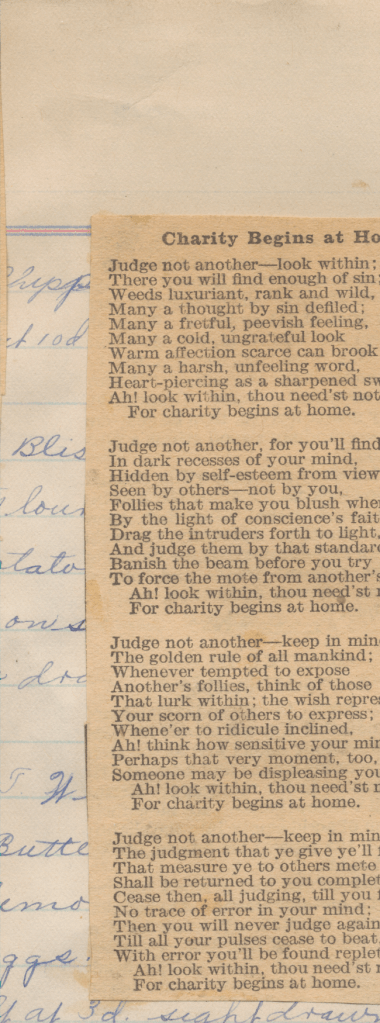 Charity Begins at Ho
Judge not another—look within;
There you will find enough of sin;
Weeds luxuriant, rank and wild,
Many a thought by sin defiled;
Many a fretful, peevish feeling,
Many a cold, ungrateful look
Warm affection scarce can brook
Many a harsh, unfeeling word,
Heart-piercing as a sharpened sw
Ah! look within, thou need'st not
For charity begins at home.
Judge not another, for you'll find
In dark recesses of your mind,
Hidden by self-esteem from view
Seen by others—not by you,
Follies that make you blush whe
By the light of conscience's fait
Drag the intruders forth to light,
And judge them by that standar
Banish the beam before you try
To force the mote from another's
Ah! look within, thou need'st
For charity begins at home.
Judge not another—keep in min
The golden rule of all mankind;
Whenever tempted to expose
Another's follies, think of those
That lurk within; the wish repre
Your scorn of others to express;
Whene'er to ridicule inclined,
Ah! think how sensitive your min
Perhaps that very moment, too,
Someone may be displeasing you
Ah! look within, thou need'st
For charity begins at home.
Judge not another—keep in min
The judgment that ye give ye'll
That measure ye to others mete
Shall be returned to you complet
Cease then, all judging, till you
No trace of error in your mind;
Then you will never judge again
Till all your pulses cease to beat
With error you'll be found replet
Ah! look within, thou need'st
For charity begins at home.
Blis
lour
tato
ons
dra
W
Butte
emo
ggs.
at 3d. sight draw